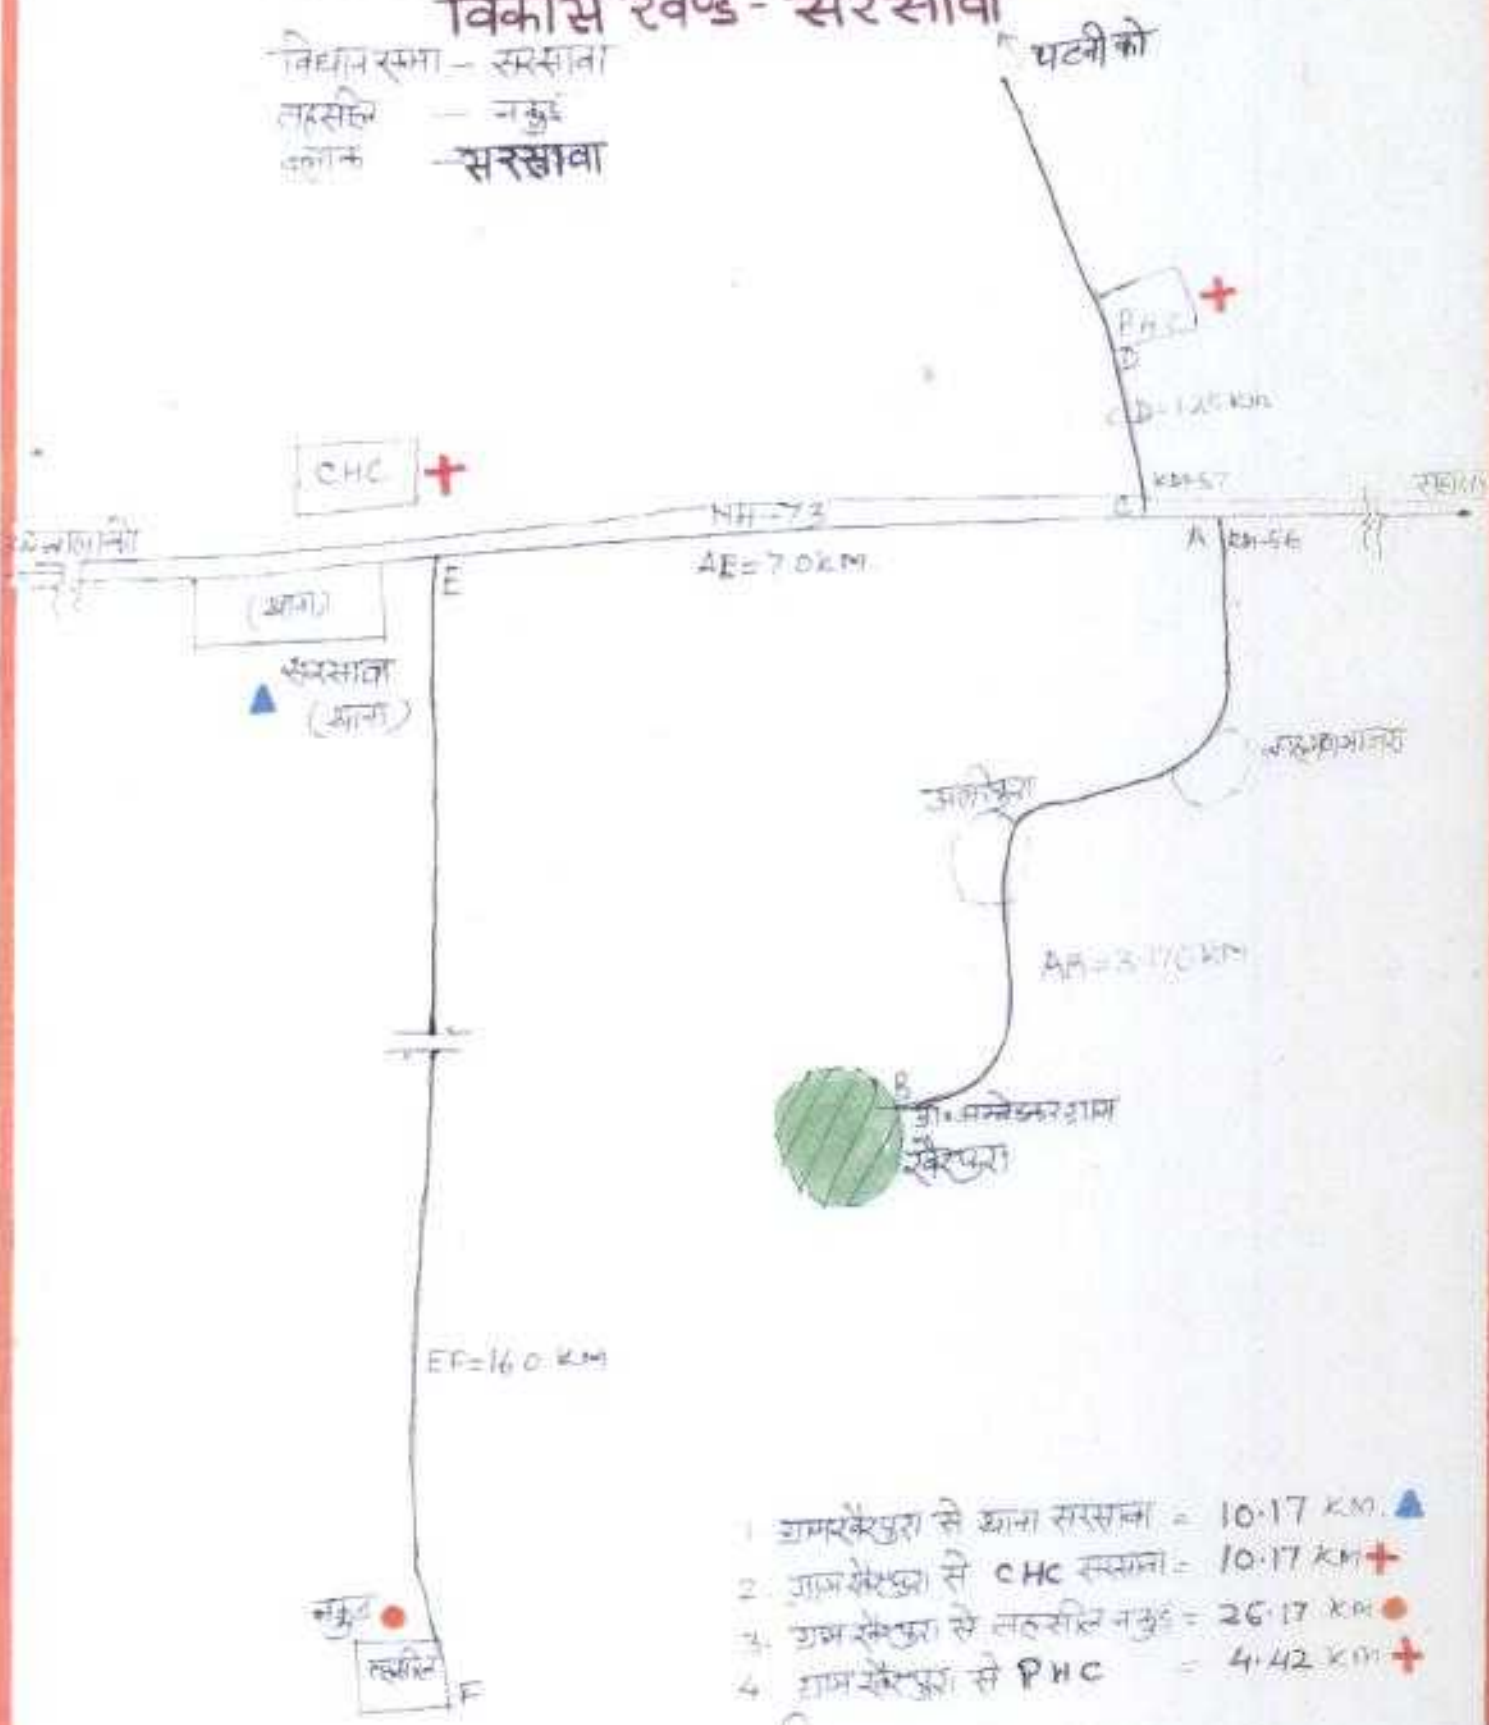 विकास खण्ड - सरसावा
विधानसभा - सरसावा
तहसील - नकुड़
ब्लाक - सरसावा
PHC
D
CD=1.25 KM
CHC
KM-57
NH-73
C
A
KM-56
AE=7.0 KM
E
(थाना)
सरसावा
(थाना)
AB=3.170 KM
B
डा० अम्बेडकर ग्राम
खैरपुरा
EF=16.0 KM
नकुड़
तहसील
F
1. ग्राम खैरपुरा से थाना सरसावा = 10.17 KM.
2. ग्राम खैरपुरा से CHC सरसावा = 10.17 KM
3. ग्राम खैरपुरा से तहसील नकुड़ = 26.17 KM
4. ग्राम खैरपुरा से PHC = 4.42 KM